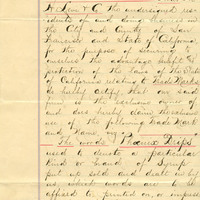 We Kim & Co the undersigned res-
idents of and doing business in
the City and County of San
Francisco and State of California
for the purpose of securing to
ourselves the advantage benefit &
protection of the laws of the State
of California relating to Trade Marks
do hereby certify that our said
firm is the exclusive owner of
and does hereby claim the exclusive
use of the following trade mark
and Name, viz:
The words "Phoenix Drips"
used to denote a particular
kind or brand of Syrup
put up sold and dealt in by
us which words are to be
affixed to, printed on, or impressed